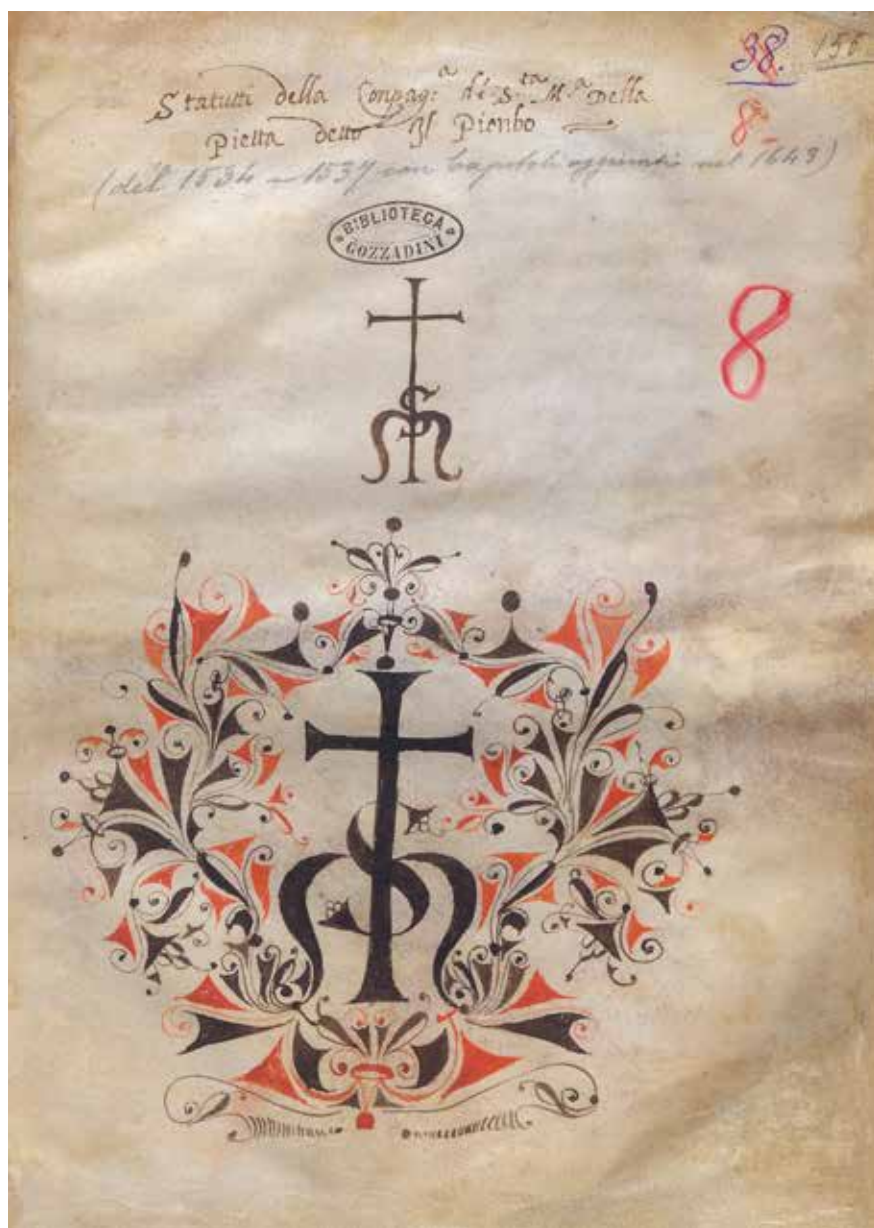 38. 156
8-
Statutti della Conpag.a di S.ta M.a Della
Pietta detto Il Pionbo
(del 1534 - 1537 con Capitoli aggiunti nel 1643)
BIBLIOTECA
GOZZADINI
8